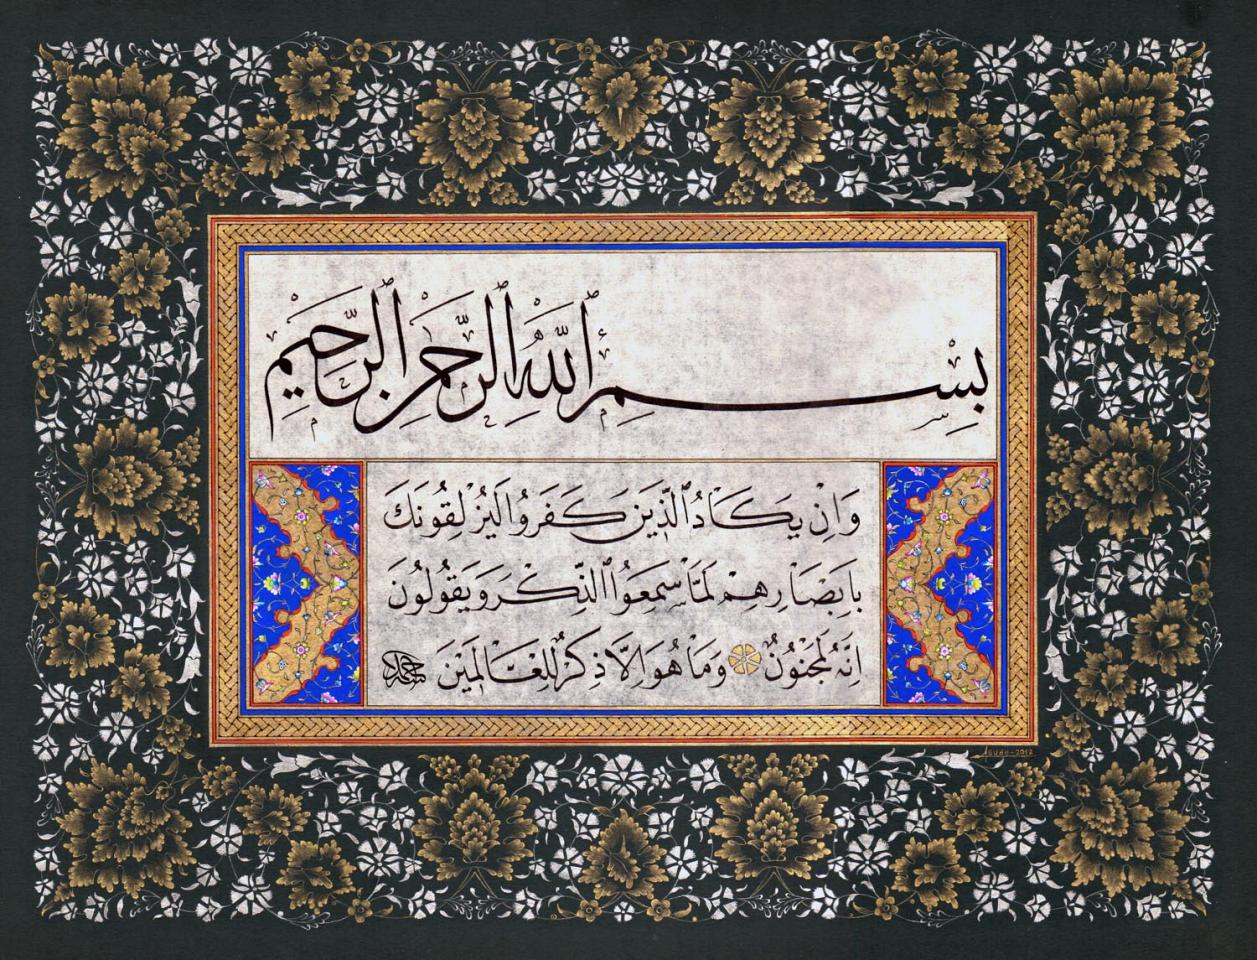 بِسْمِ ٱللّٰهِ ٱلرَّحْمٰنِ ٱلرَّحِيمِ
وَاِنْ يَكَادُ الَّذٖينَ كَفَرُوا لَيُزْلِقُونَكَ
بِاَبْصَارِهِمْ لَمَّا سَمِعُوا الذِّكْرَ وَيَقُولُونَ
اِنَّهُ لَمَجْنُونٌ وَمَا هُوَ اِلَّا ذِكْرٌ لِلْعَالَمٖينَ
Asude-2012